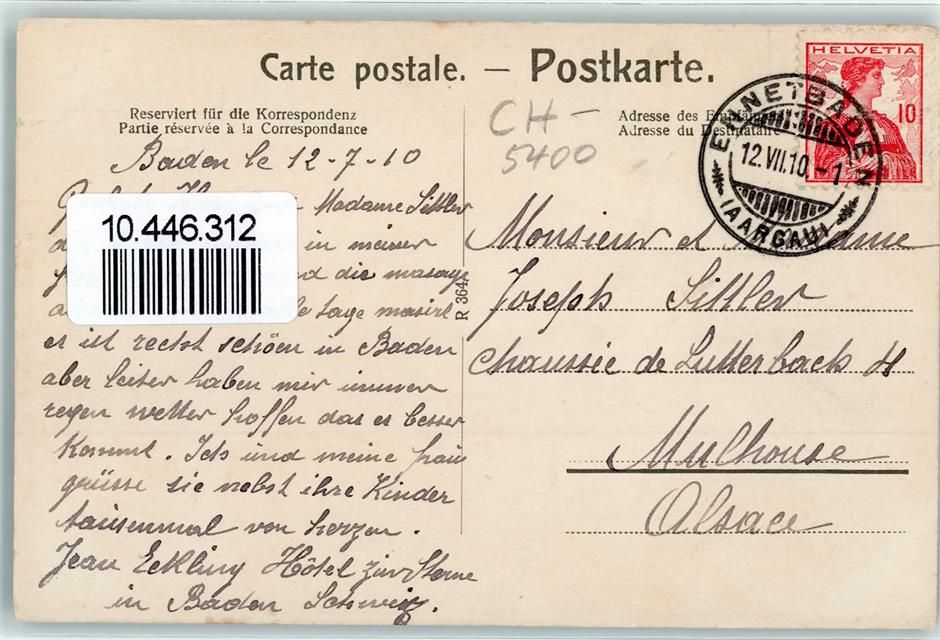 Carte postale. – Postkarte.
Reserviert für die Korrespondenz
Partie réservée à la Correspondance
Adresse des
Adresse du Destinataire
CH-
5400
HELVETIA
10
ENNETBADEN
12.VII.10.-1
(AARGAU)
10.446.312
R 364
Baden le 12-7-10
Madame Sittler
in meiner
die masage
tage masirt
es ist recht schöen in Baden
aber leiter haben mir immer
regen wetter hoffen das es besser
kommt. Ich und meine frau
grüsse sie nebst ihre Kinder
tausenmal von herzen.
Jean Eckling Hôtel zur Sterne
in Baden Schweiz.
Monsieur et Madame
Joseph Sittler
chaussie de Lutterbach
Mulhouse
Alsace